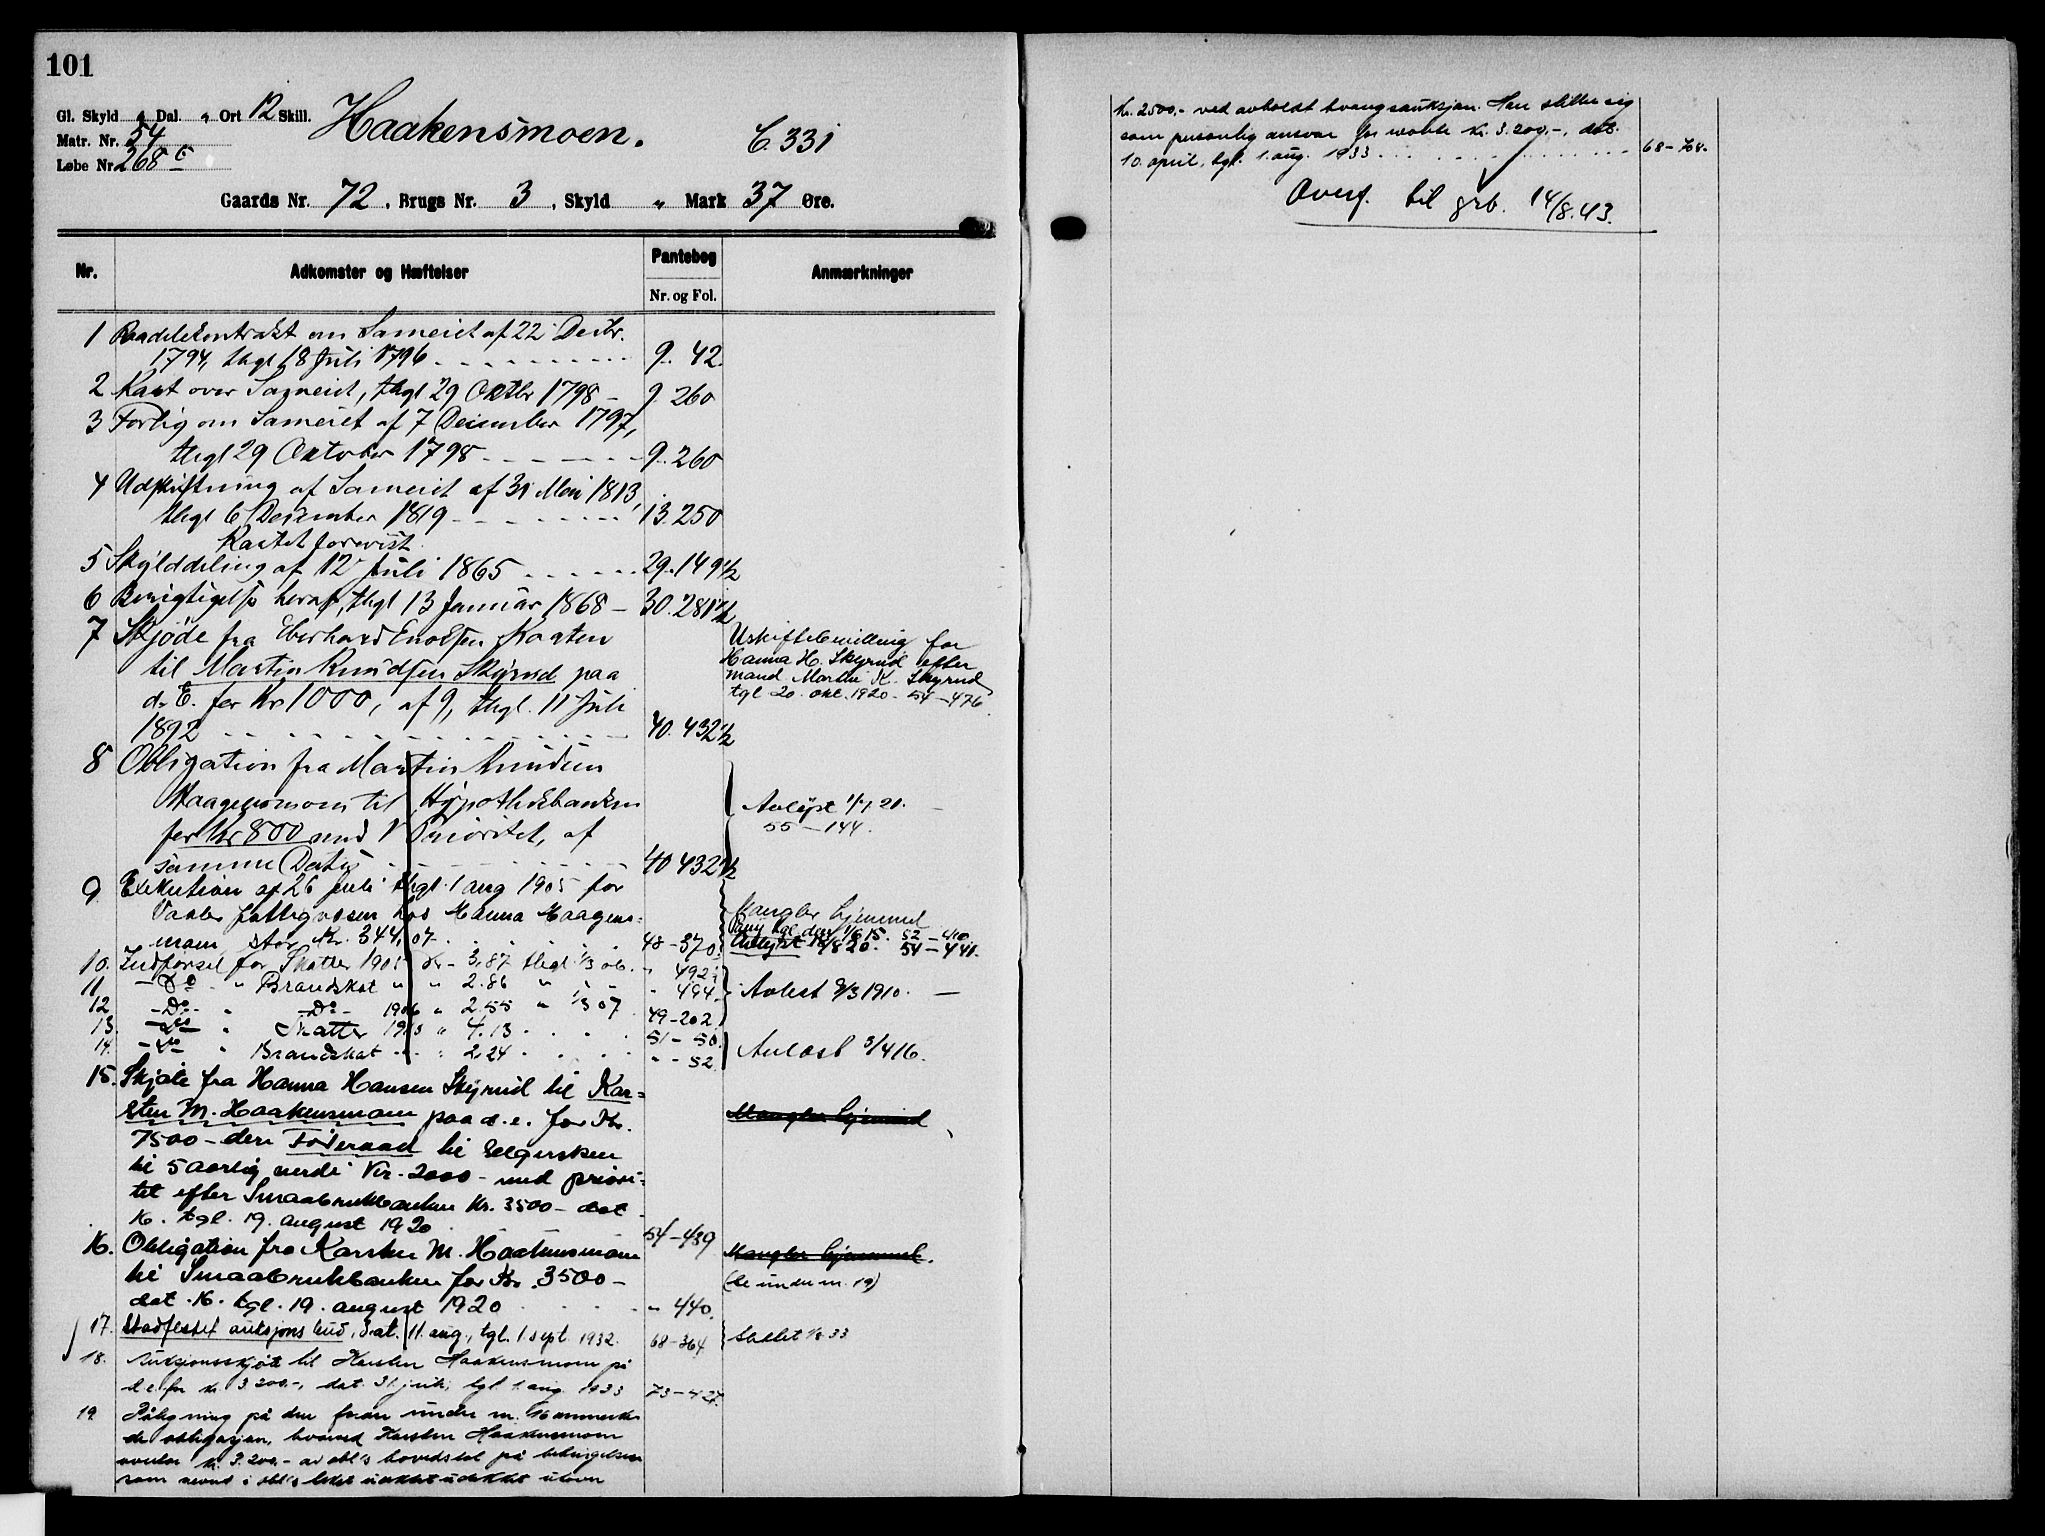 101
Gl. Skyld " Dal. " Ort 12 Skill.
Haakensmoen.
C 331
Matr. Nr. 54
Løbe Nr. 268 c
Gaards Nr. 72, Brugs Nr. 3, Skyld " Mark 37 Øre.
Nr. Adkomster og Hæftelser Pantebog Nr. og Fol. Anmærkninger
1 Raadelekontrakt om Sameiet af 22 Decbr.
1794, thgl 18 Juli 1796 9. 42
2 Kart over Sameiet, thgl 29 Oktbr 1798 9 260
3 Forlig om Sameiet af 7 December 1797,
thgl 29 Oktober 1798 9. 260
4 Udskiftning af Sameiet af 31 Mai 1813,
thgl 6 December 1819 13. 250
Kartet forevist
5 Skylddeling af 12 Juli 1865 29. 149 1/2
6 Berigtigelse heraf, thgl 13 Januar 1868 30. 281 1/2
7 Skjøde fra Eberhard Enoksen Kaaten
til Martin Knudsen Skyrud paa
d. E. for Kr 1000, af 9, thgl. 11 Juli
1892 40. 432 1/2
Uskiftebevilling for
Hanna H. Skyrud efter
mand Martin K. Skyrud
tgl 20. okt. 1920 - 54 - 476
8 Obligation fra Martin Knudsen
Haagensmoen til Hypothekbanken
for Kr 800 med 1 Prioritet, af
samme Dato 40 432 1/2
Avlyst 11/1 21.
55 - 144.
9 Exekution af 26 juli thgl. 1 aug 1905 for
Vaaler fattigvæsen hos Hanna Haagens=
moen, stor Kr. 344,07 48 - 370
Mangler hjemmel
Paany tgl. den 1/6 15. 52 - 410
Avlyst 18/8 20. 54 - 441.
10. Indførsel for Skatter 1905 Kr. 3,87 thgl. 1/3 06. " 492
11 - Do " Brandskat " " 2.86 " " " 494
Avlest 8/3 1910.
12 - Do - " - Do - 1906 " 2.55 " 1/3 07 49 - 202
13. - Do " Skatter 1910 " 4.13 51 - 50
14. - Do " Brandskat " 2,24 " - 52
Avlæst 3/4 16.
15. Skjøte fra Hanna Hansen Skyrud til Kar=
sten M. Haakensmoen paa d. e. for Kr.
7500 - den Føderaad til Selgersken
til 5 aarlig verdi Kr. 2000 - med priori=
tet efter Smaabrukbanken Kr. 3500 - dat
16. tgl. 19. august 1920 54 - 439
Mangler hjemmel
16. Obligation fra Karsten M. Haakensmoen
til Smaabrukbanken for Kr. 3500 -
dat. 16. tgl. 19. august 1920 " 440.
Mangler hjemmel.
(Se under nr. 19)
17. Stadfestet auksjons bud, dat. 11. aug., tgl. 1 sept. 1932. 68 - 364
Slettet 1/8 33
18. Auksjonsskjøte til Karsten Haakensmoen på
d. e. for kr. 3 200.-, dat. 31. juli, tgl. 1. aug. 1933 73 - 427
19 Påtegning på den foran under nr. 16 anmerke
de obligasjon, hvorved Karsten Haakensmoen
overtar kr. 3.200.- av obl's hovedstol på betingelser
som nevnt i obl's tekst udekket utover
kr. 2500.- ved avholdt tvangsauksjon. Han stiller sig
som personlig ansvar for wohle kr. 3.200.-, dat.
10. april, tgl. 1. aug. 1933 68 - 704.
Overf. til grb. 14/8.43.